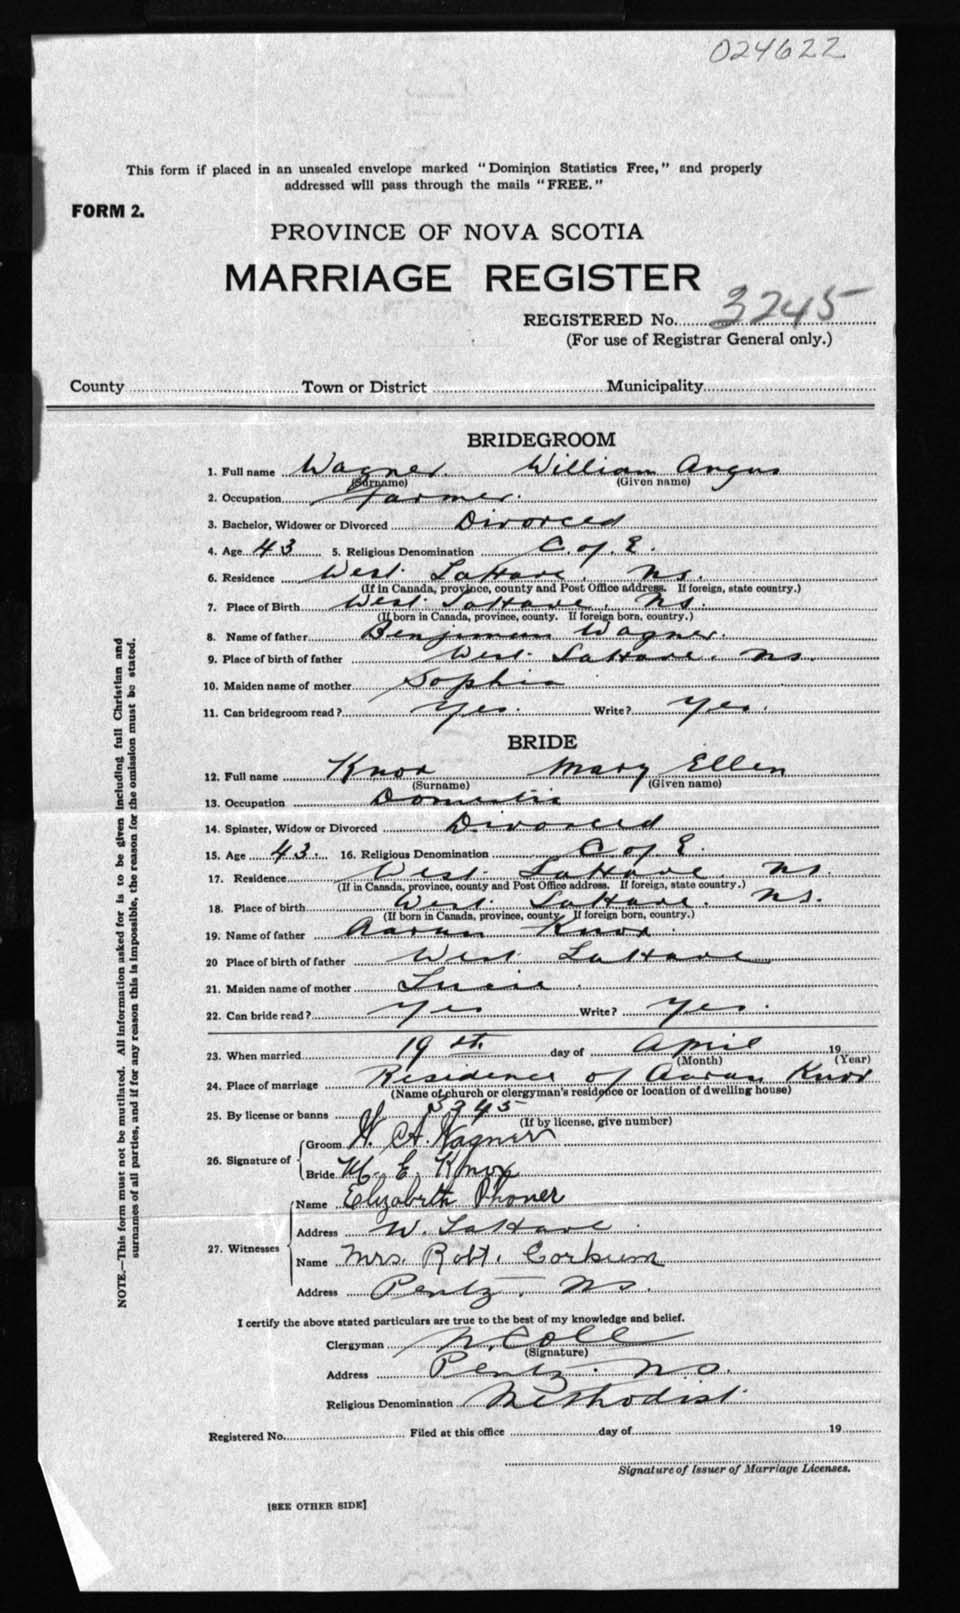 024622
This form if placed in an unsealed envelope marked "Dominion Statistics Free," and properly
addressed will pass through the mails "FREE."
FORM 2.
PROVINCE OF NOVA SCOTIA
MARRIAGE REGISTER
REGISTERED No. 3245
(For use of Registrar General only.)
County Town or District Municipality
BRIDEGROOM
1. Full name Wagner William Angus
(Surname) (Given name)
2. Occupation Farmer.
3. Bachelor, Widower or Divorced Divorced
4. Age 43 5. Religious Denomination C. of E.
6. Residence West LaHave. NS.
(If in Canada, province, county and Post Office address. If foreign, state country.)
7. Place of Birth West LaHave. NS.
(If born in Canada, province, county. If foreign born, country.)
8. Name of father Benjimun Wagner.
9. Place of birth of father West LaHave. NS.
10. Maiden name of mother Sophia
11. Can bridegroom read? Yes. Write? Yes.
BRIDE
12. Full name Knox Mary Ellen
(Surname) (Given name)
13. Occupation Domestic
14. Spinster, Widow or Divorced Divorced
15. Age 43. 16. Religious Denomination C of E.
17. Residence West LaHave. NS.
(If in Canada, province, county and Post Office address. If foreign, state country.)
18. Place of birth West LaHave. NS.
(If born in Canada, province, county. If foreign born, country.)
19. Name of father Aaran Knox.
20 Place of birth of father West LaHave
21. Maiden name of mother Lucie.
22. Can bride read? Yes Write? Yes.
23. When married 19th day of April 19
(Month) (Year)
24. Place of marriage Residence of Aaran Knox
(Name of church or clergyman's residence or location of dwelling house)
25. By license or banns 5395
(If by license, give number)
26. Signature of Groom W. A. Wagner
Bride M. E. Knox
27. Witnesses Name Elizabeth
Address W. LaHave.
Name Mrs. Robt. Corkum
Address Pentz. NS.
I certify the above stated particulars are true to the best of my knowledge and belief.
Clergyman N. Cole
(Signature)
Address Pentz. N.S.
Religious Denomination Methodist.
Registered No. Filed at this office day of 19
Signature of Issuer of Marriage Licenses.
[SEE OTHER SIDE]
NOTE.—This form must not be mutilated. All information asked for is to be given including full Christian and
surnames of all parties, and if for any reason this is impossible, the reason for the omission must be stated.